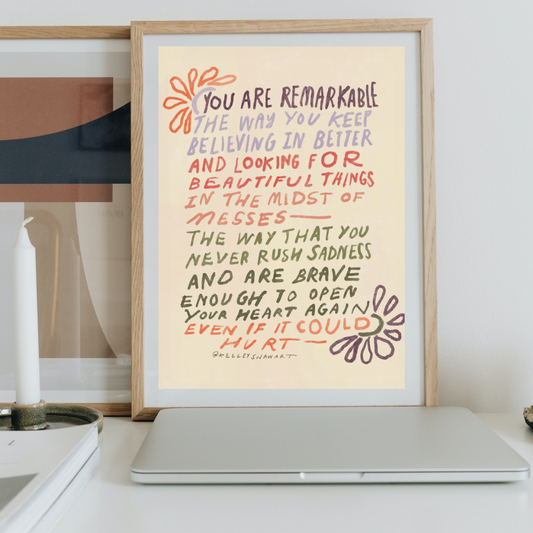 YOU ARE REMARKABLE
THE WAY YOU KEEP
BELIEVING IN BETTER
AND LOOKING FOR
BEAUTIFUL THINGS
IN THE MIDST OF
MESSES—
THE WAY THAT YOU
NEVER RUSH SADNESS
AND ARE BRAVE
ENOUGH TO OPEN
YOUR HEART AGAIN
EVEN IF IT COULD
HURT—